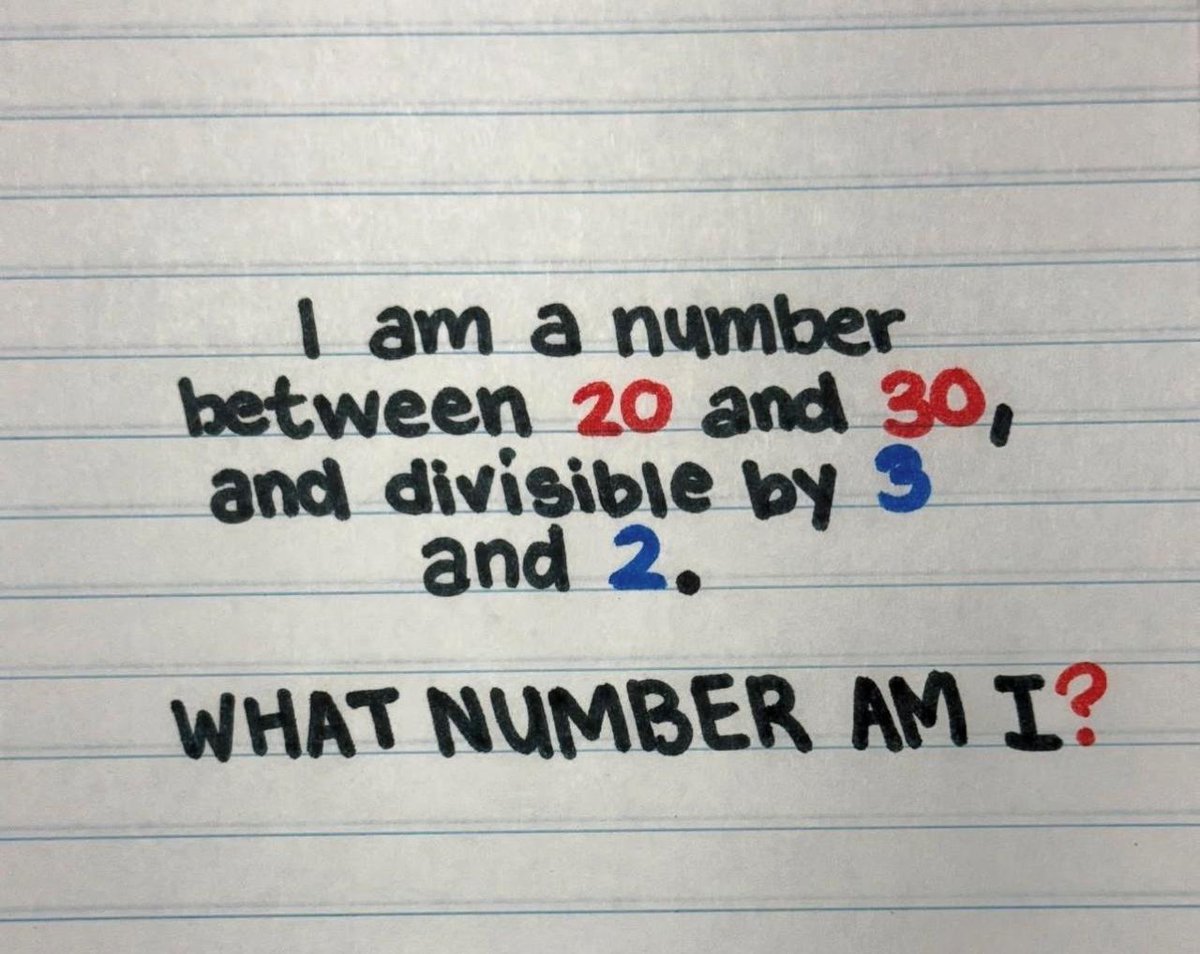 I am a number
between 20 and 30,
and divisible by 3
and 2.
WHAT NUMBER AM I?